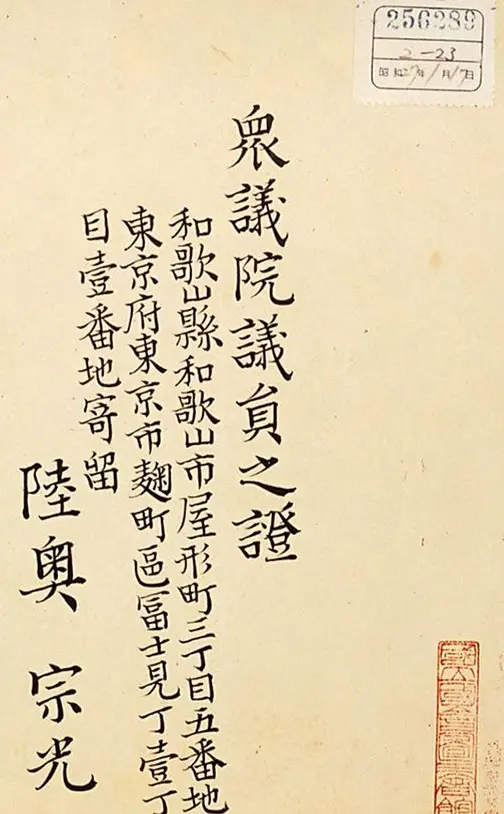 衆議院議員之證
和歌山縣和歌山市屋形町三丁目五番地
東京府東京市麹町區冨士見丁壹丁
目壹番地寄留
陸奥宗光
256289
2-23
昭和27年1月17日